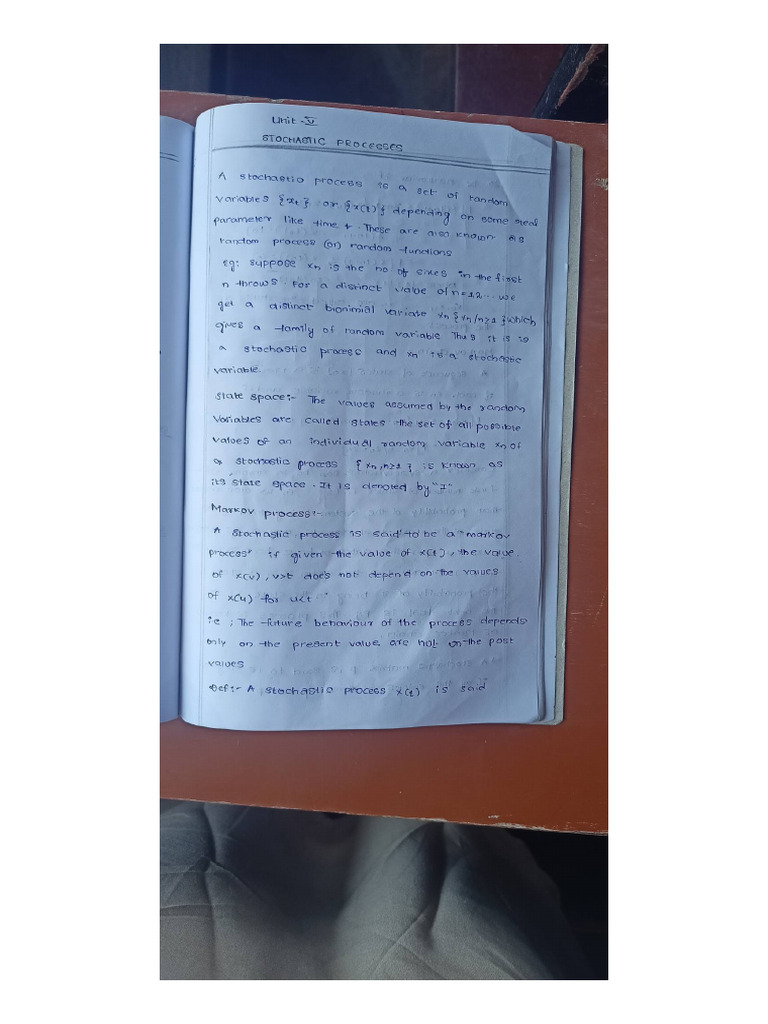 Unit - V
STOCHASTIC PROCESSES
A stochastic process is a set of random
variables {xt} or {x(t)} depending on some real
parameter like time t. These are also known as
random process (or) random functions
Eg: suppose xn is the no of sixes in the first
n throws For a distinct value of n=1,2,... we
get a distinct bionimial variate xn {xn/n≥1} which
gives a family of random variable Thus it is is
a stochastic process and xn is a stochastic
variable.
State space:- The values assumed by the random
variables are called states the set of all possible
values of an individual random variable xn of
a stochastic process {xn,n≥1} is known as
its state space. It is denoted by "I"
Markov process:-
A stochastic process is said to be a "markov
process" if given the value of x(t), the value
of x(v), v>t does not depend on the values
of x(u) for u<t
ie; The future behaviour of the process depends
only on the present value are not on the past
values
Def:- A stochastic process x(t) is said